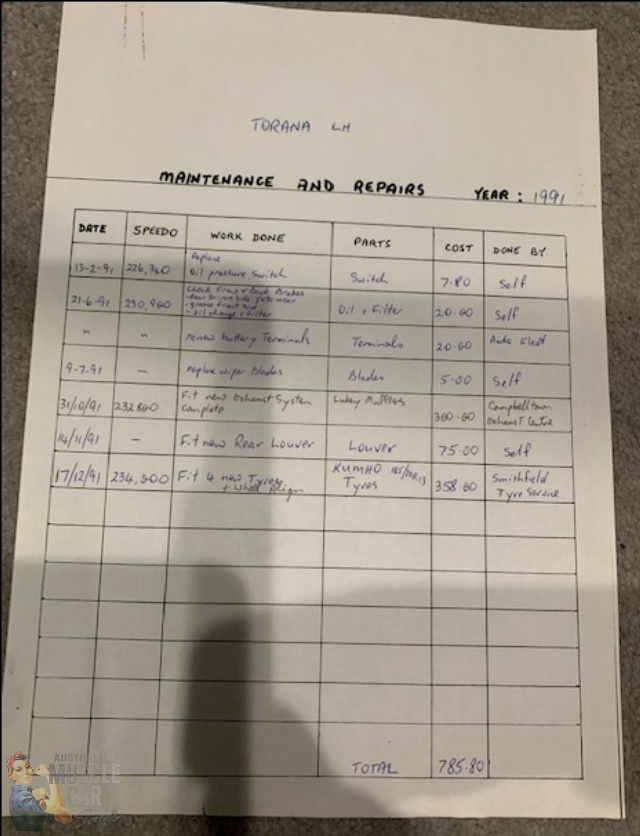 TORANA LH
MAINTENANCE AND REPAIRS YEAR: 1991
DATE SPEEDO WORK DONE PARTS COST DONE BY
Replace
13-2-91 Oil pressure Switch Switch 7.80 Self
Check Front + Back Brakes
21-6-91 230,900 Oil + Filter 20.00 Self
- oil change + Filter
" " renew battery Terminals Terminals 20.00 Auto Elect
9-7-91 — replace wiper Blades Blades 5.00 Self
31/10/91 232800 Fit new Exhaust System Campbelltown
Complete 300.00 Exhaust Centre
14/11/91 — Fit new Rear Louver Louver 75.00 Self
17/12/91 234,000 Fit 4 new Tyres KUMHO 358.00 Smithfield
+ Wheel Align Tyres Tyre Service
TOTAL 785.80
AUSTRALIAN
MUSCLE
CAR
Sales